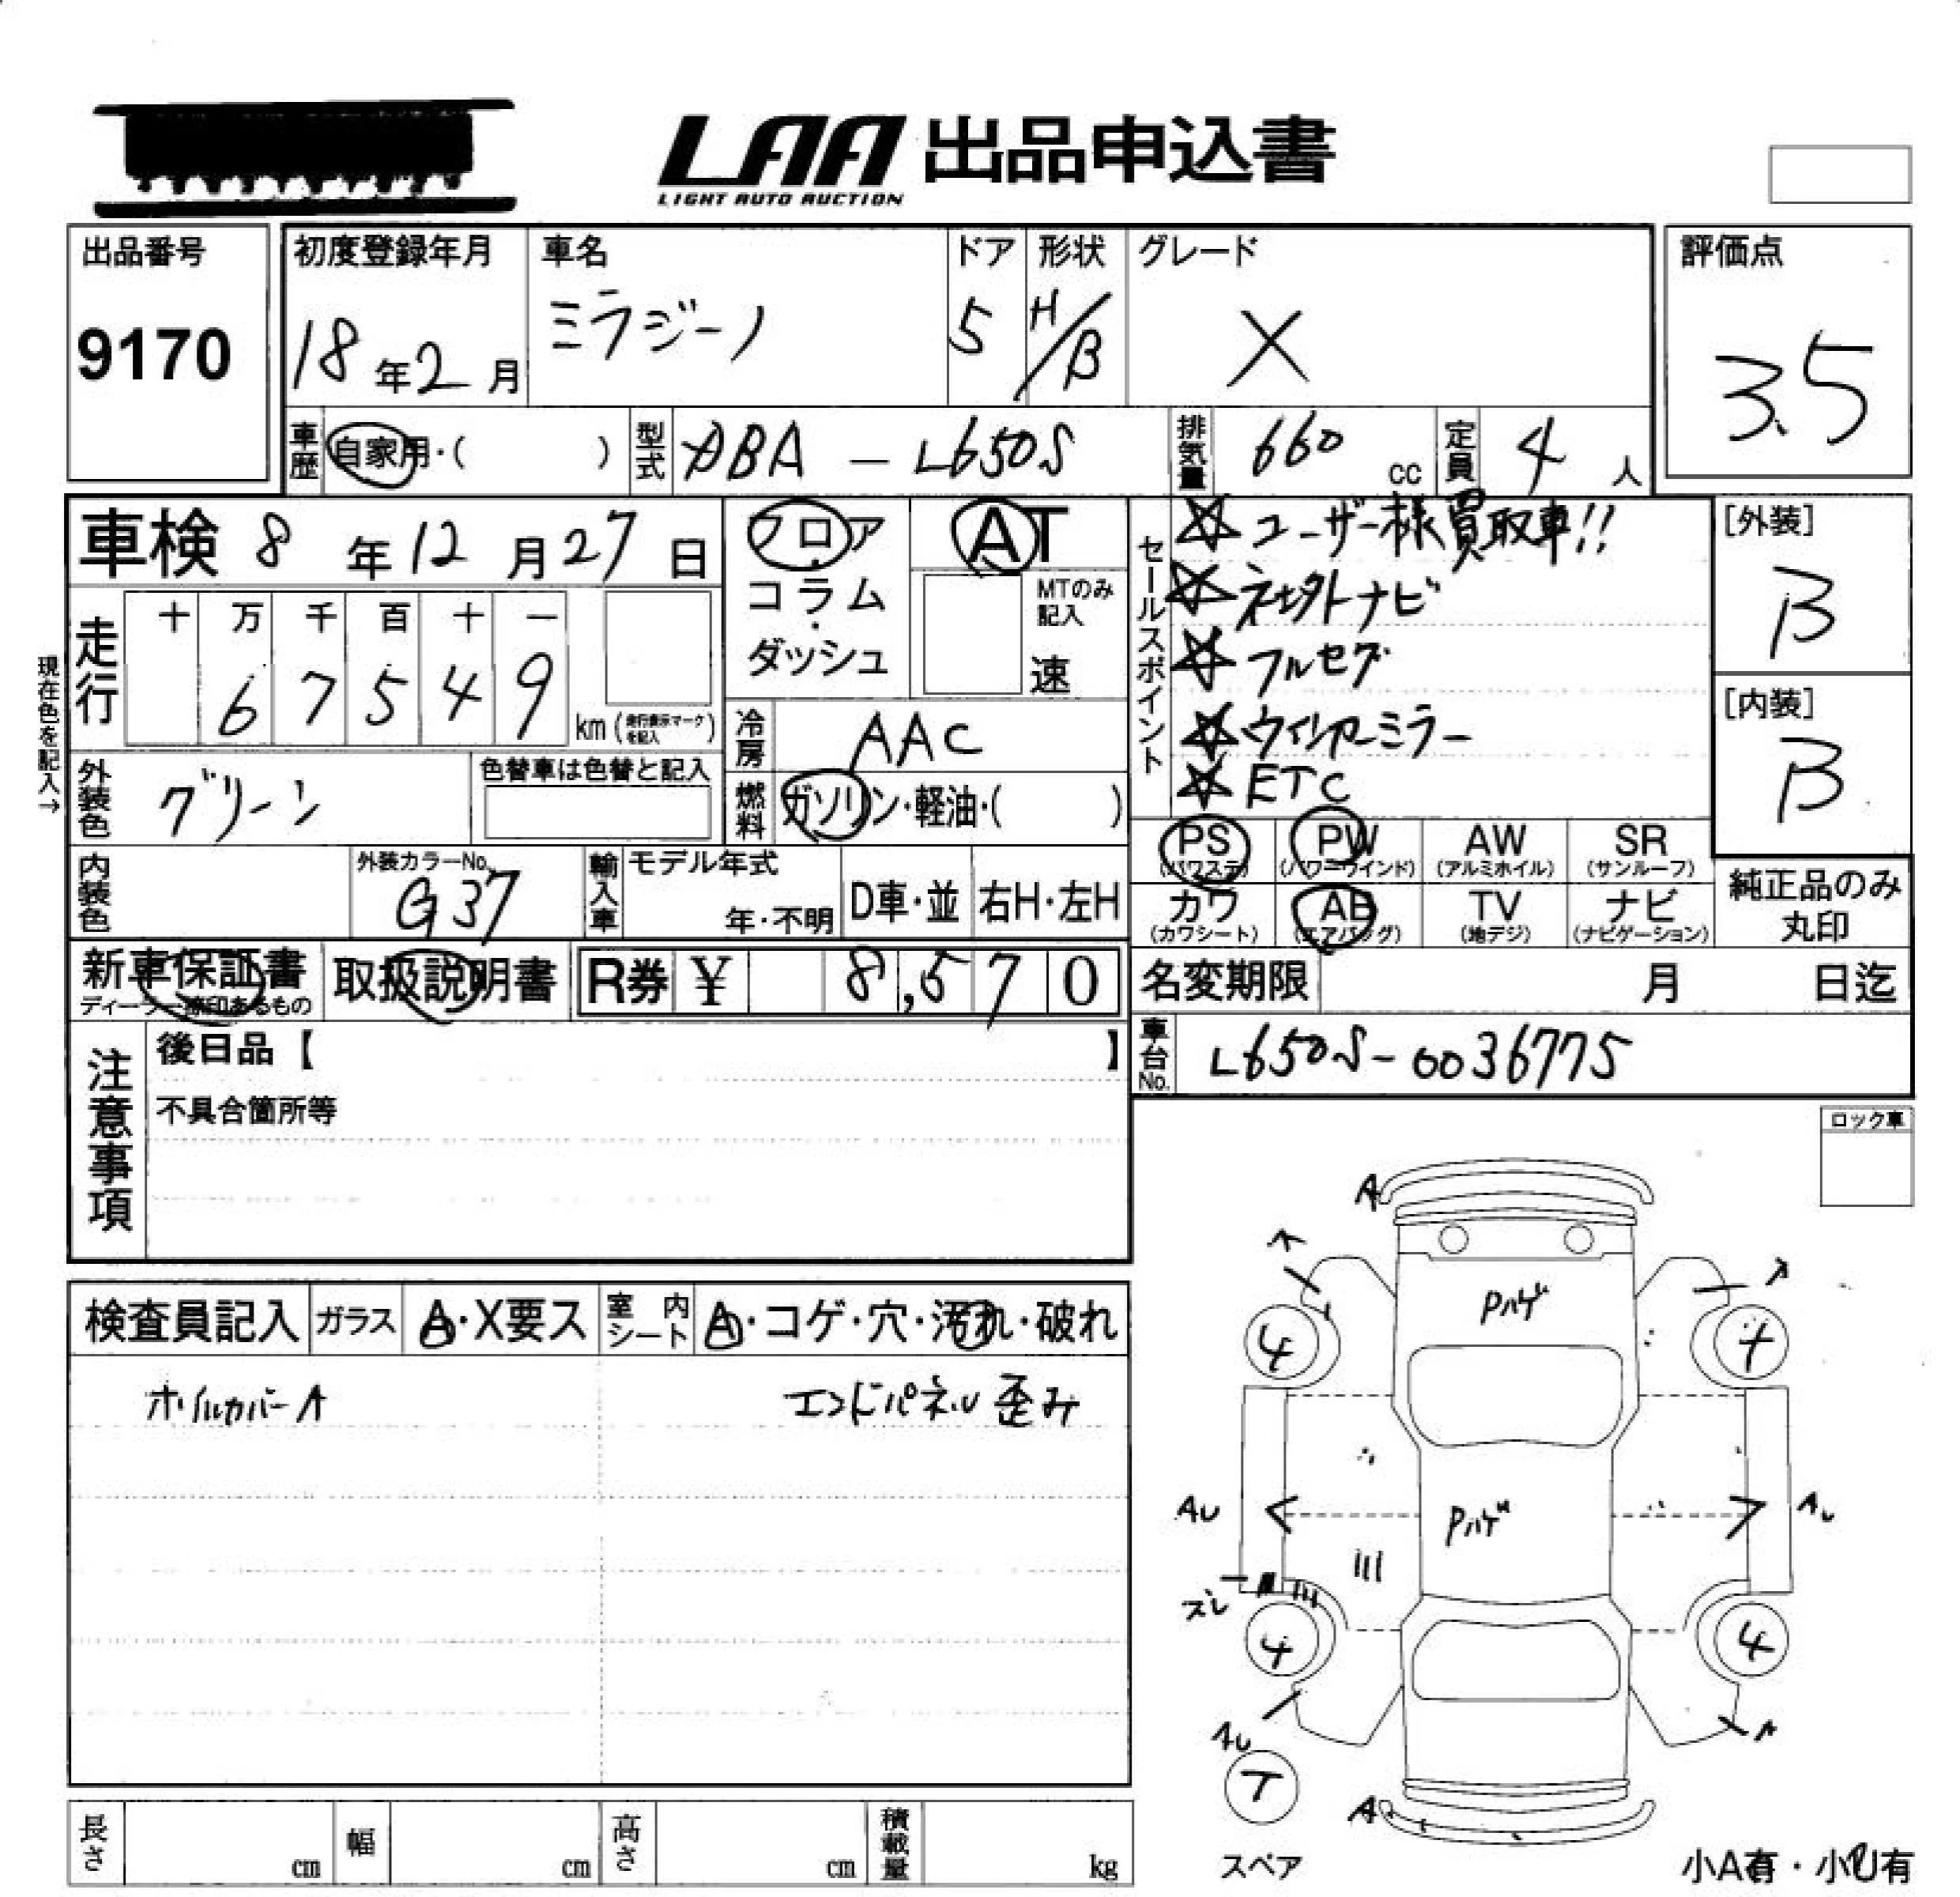 LAA 出品申込書
LIGHT AUTO AUCTION
出品番号
9170
初度登録年月
18年2月
車名
ミラジーノ
ドア
5
形状
H/B
グレード
X
評価点
3.5
車歴 自家用・( )
型式 DBA-L650S
排気量 660 cc
定員 4 人
車検 8年12月27日
フロア・コラム・ダッシュ
AT
MTのみ記入
速
現在色を記入→
走行
十 万 千 百 十 一
6 7 5 4 9
km (走行表示マークを記入)
冷房 AAC
外装色 グリーン
色替車は色替と記入
燃料 ガソリン・軽油・( )
内装色
外装カラーNo. G37
輸入車 モデル年式
年・不明
D車・並
右H・左H
セールスポイント
☆ユーザー様買取車!!
☆社外ナビ
☆フルセグ
☆ウィンカーミラー
☆ETC
[外装]
B
[内装]
B
PS (パワステ) PW (パワーウインド) AW (アルミホイル) SR (サンルーフ)
カワ (カワシート) AB (エアバッグ) TV (地デジ) ナビ (ナビゲーション)
純正品のみ丸印
新車保証書
取扱説明書
R券 ¥ 8,570
名変期限 月 日迄
車台No. L650S-0036775
注意事項
後日品【 】
不具合箇所等
ロック車
検査員記入
ガラス A・X要ス
室内シート A・コゲ・穴・汚れ・破れ
ホイルカバーA
エンドパネル歪み
A
A
Pハゲ
4
AU
Pハゲ
AU
ズレ
4
4
AU
A
T
A
スペア
小A有・小U有
長さ cm
幅 cm
高さ cm
積載量 kg